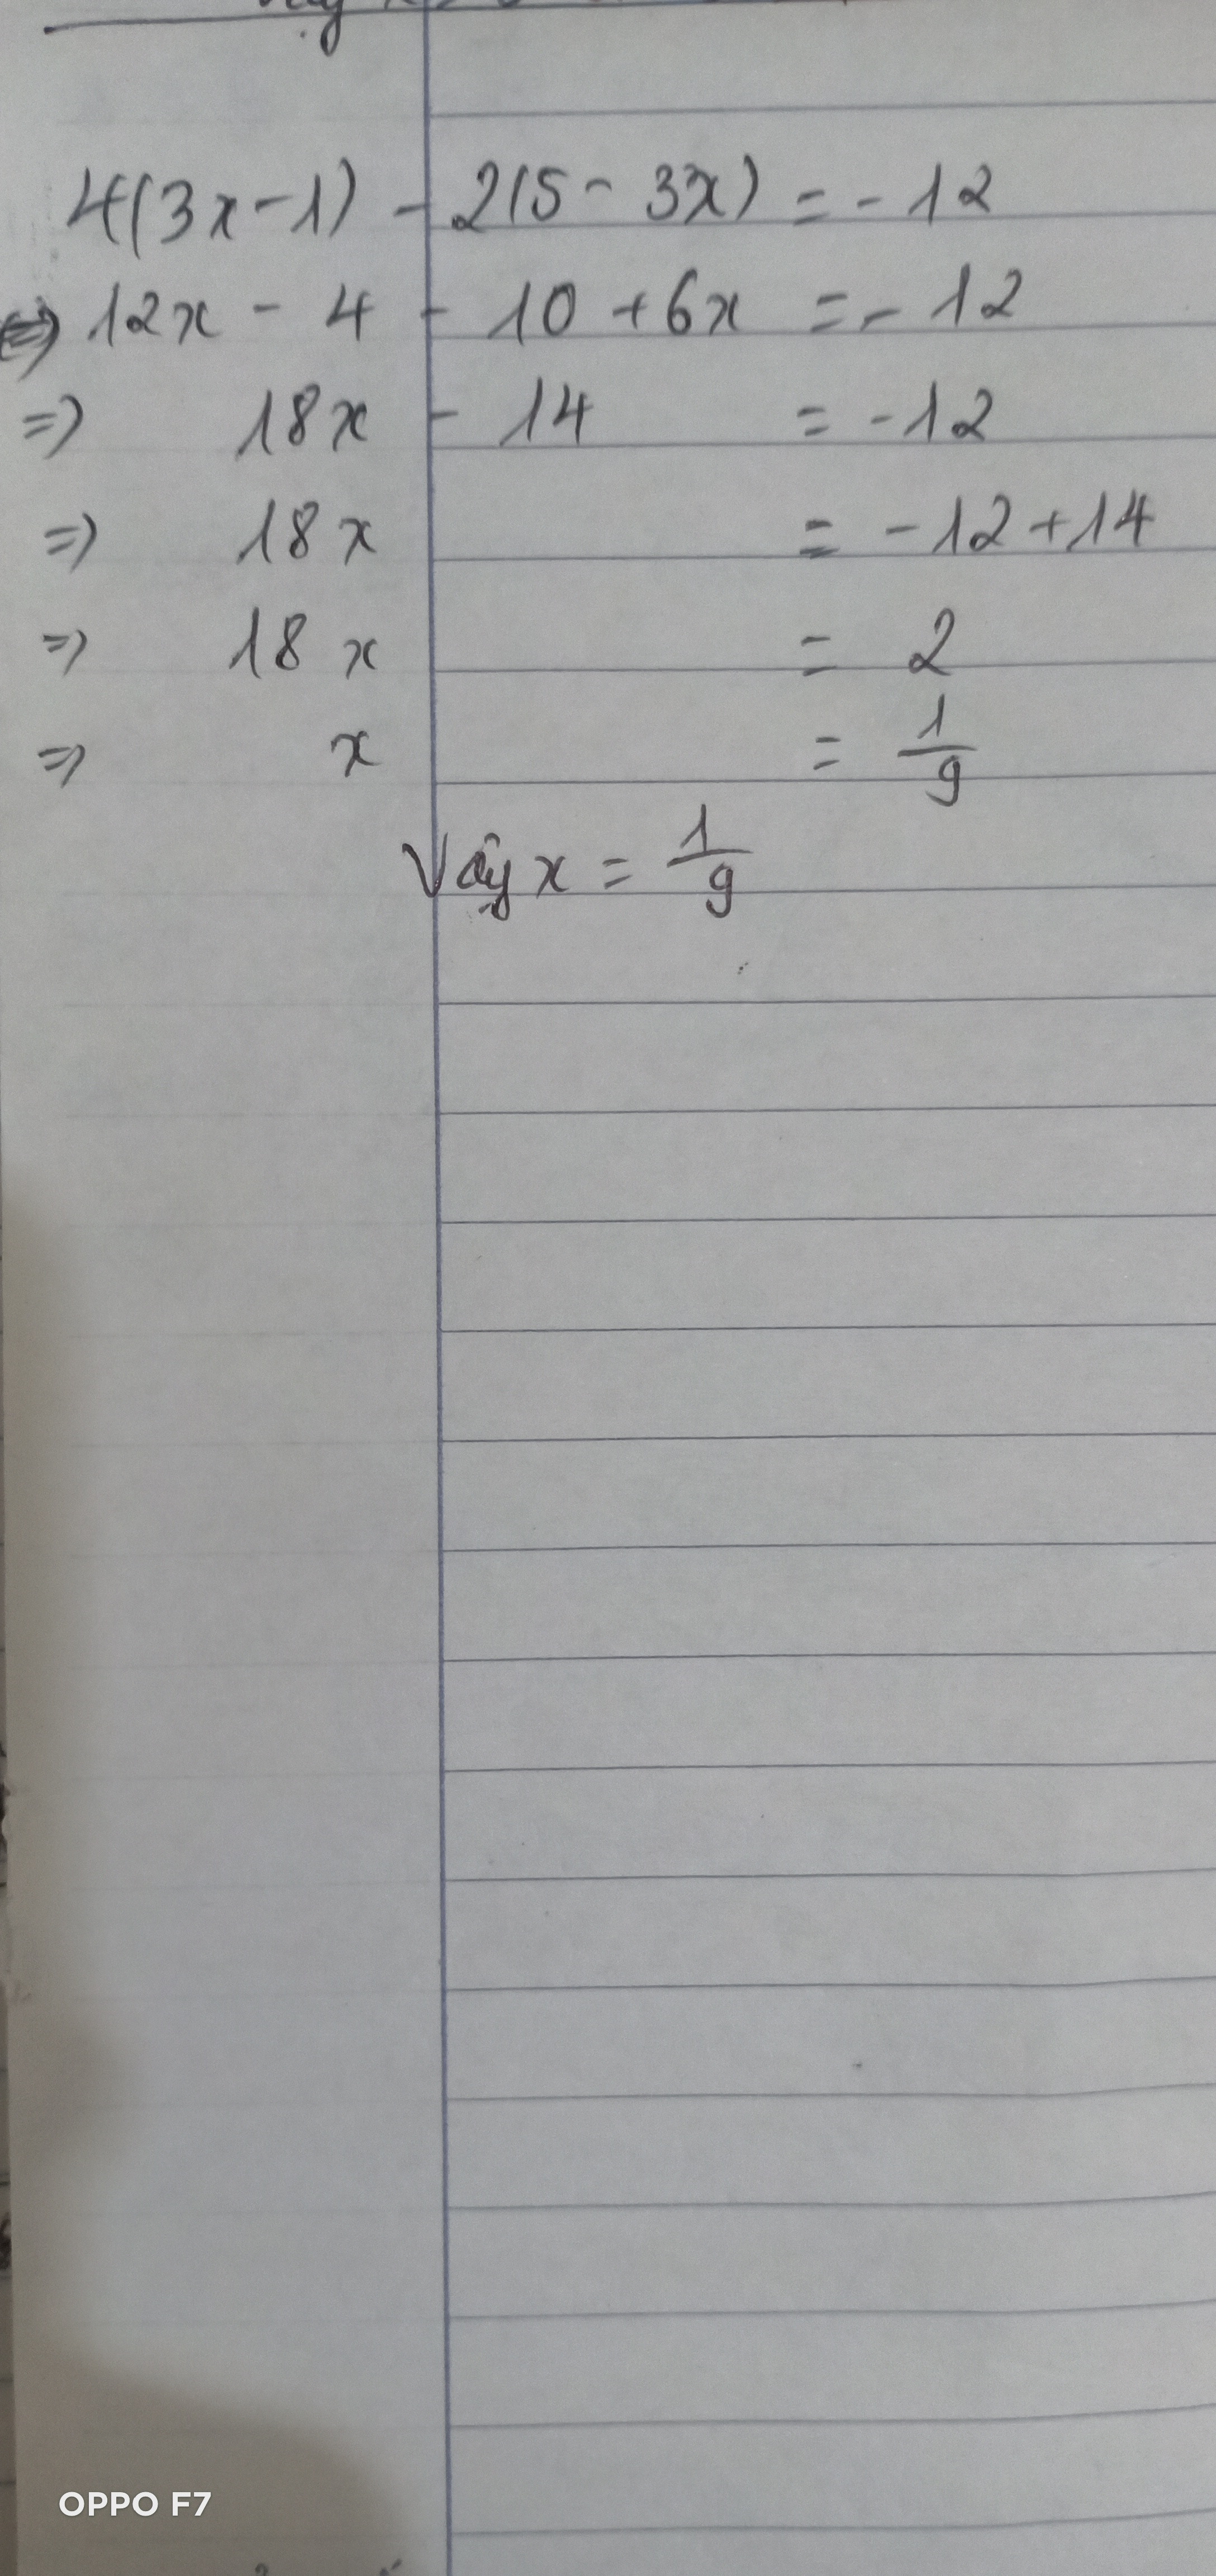 4(3x-1) - 2(5 - 3x) = -12
=> 12x - 4 - 10 + 6x = -12
=> 18x - 14 = -12
=> 18x = -12+14
=> 18x = 2
=> x = 1/9
Vậy x = 1/9
OPPO F7